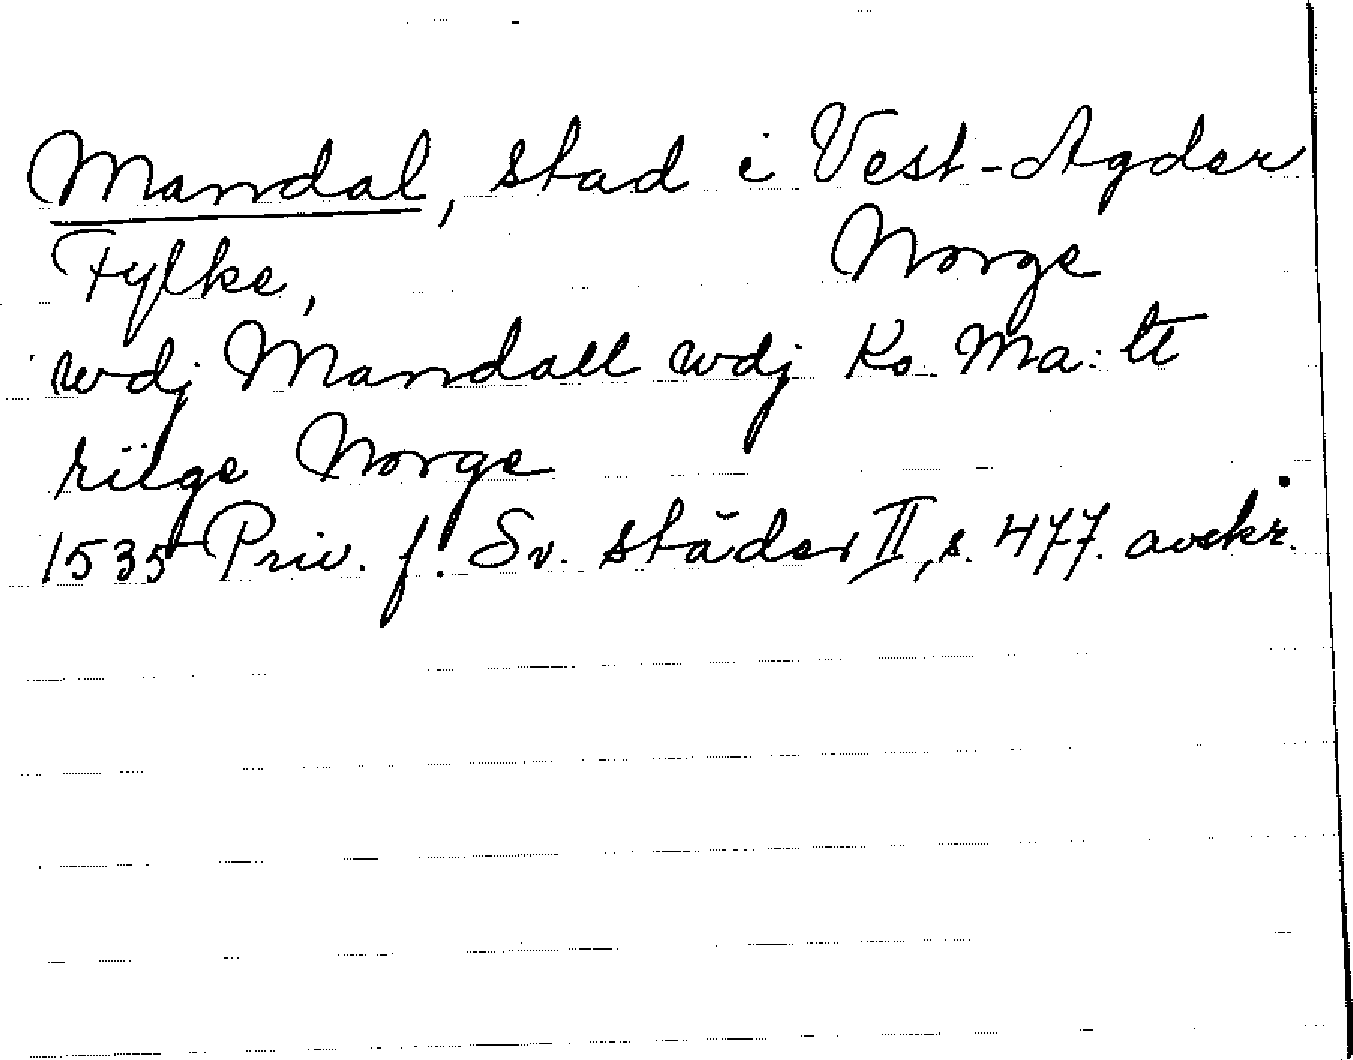 Mandal, stad i Vest-Agder
Fylke, Norge
wdj Mandall wdj Ko. Ma: tt
riige Norge
1535 Priv. f. Sv. städer II, s. 477. avskr.